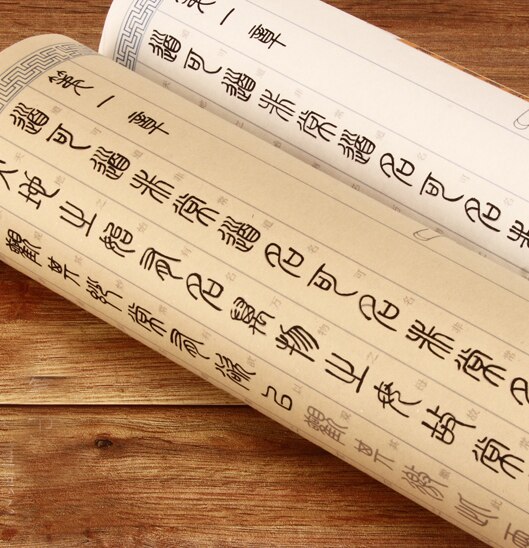 第一章
道可道非常道名可名非
第一章
道可道非常道名可名非常名
天地之始有名萬物之母故常
觀其妙常有欲以觀其徼此